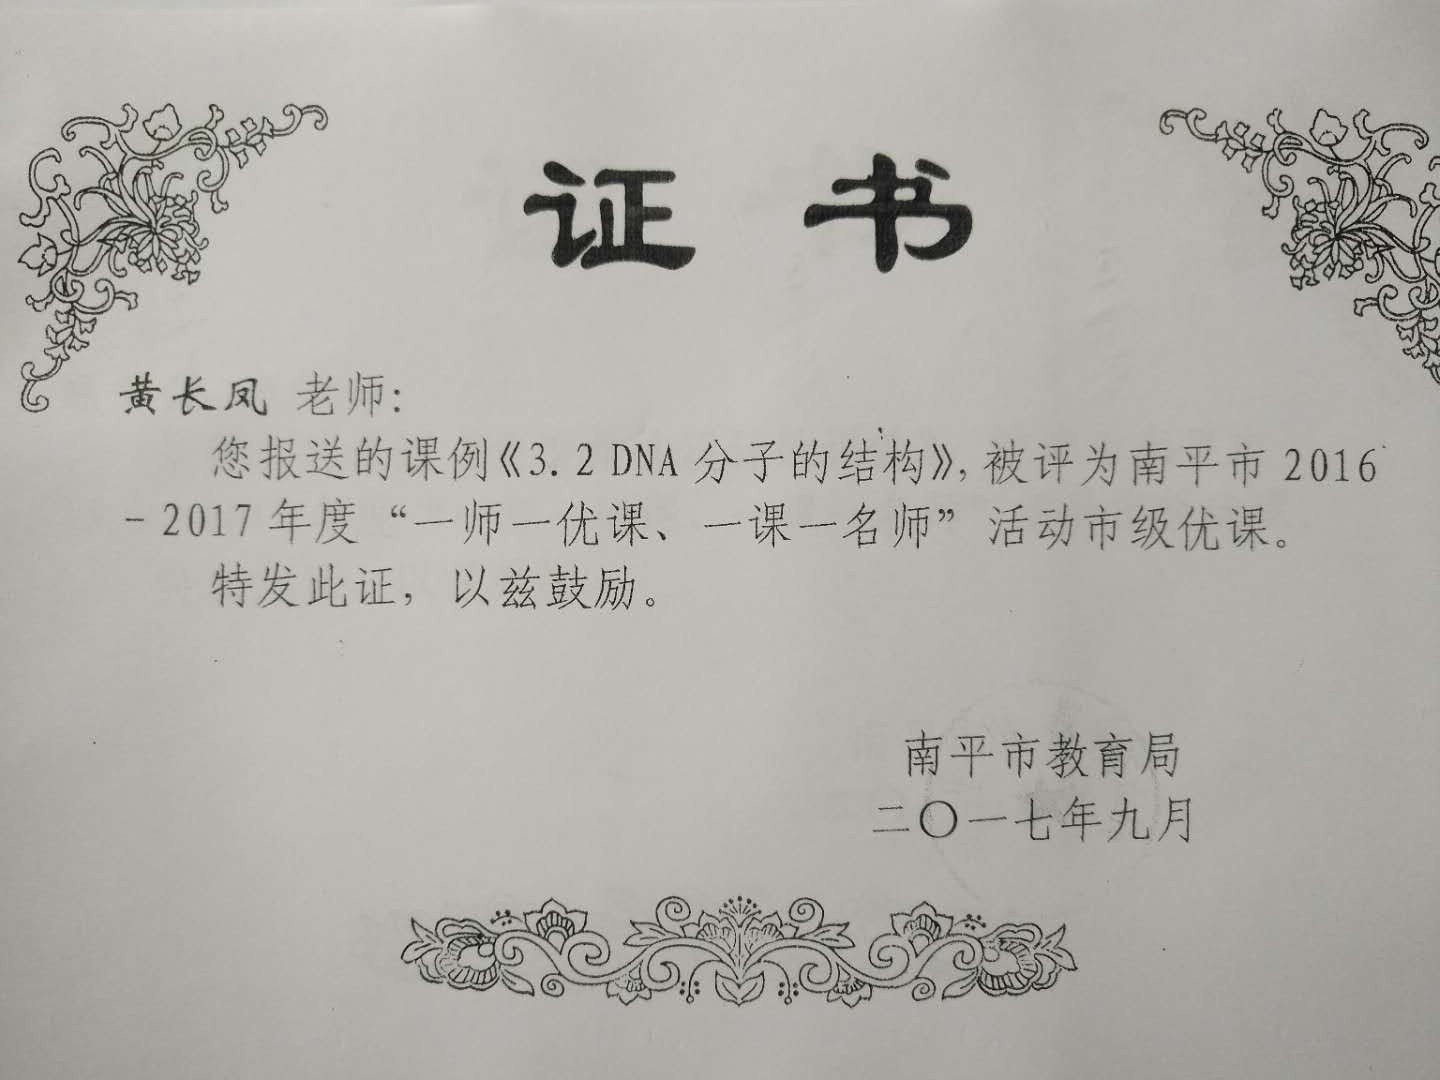 证书
黄长凤 老师:
您报送的课例《3.2 DNA 分子的结构》，被评为南平市 2016
-2017 年度 “一师一优课、一课一名师” 活动市级优课。
特发此证，以兹鼓励。
南平市教育局
二〇一七年九月